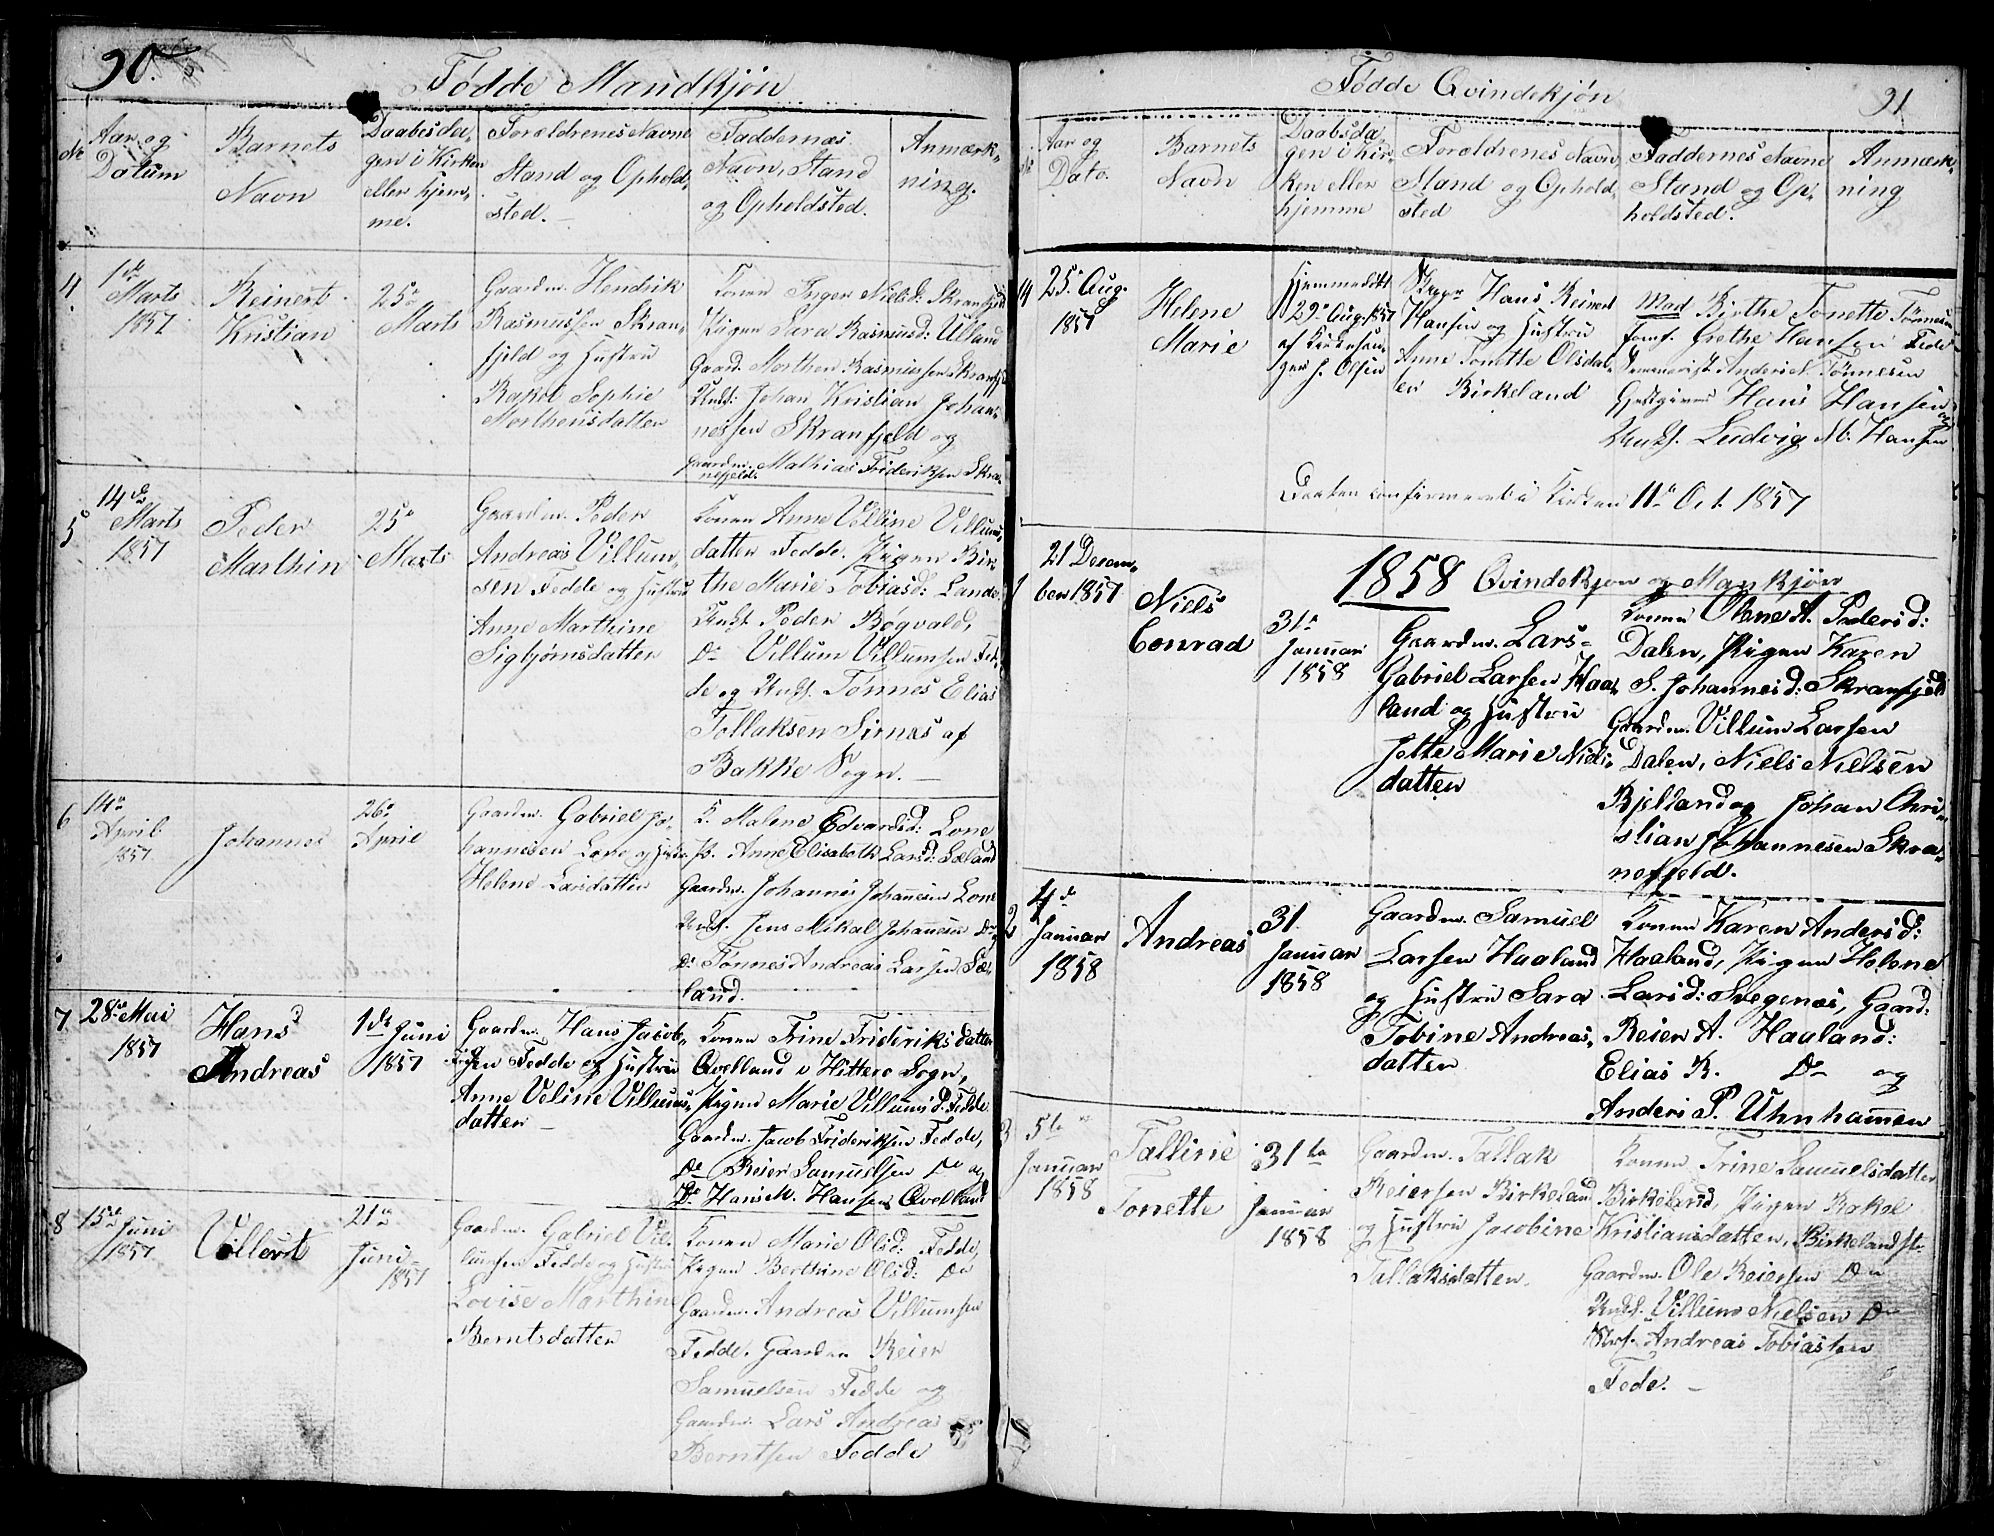 90.
Fødde Mandkjøn
No
Aar og
Datum
Barnets
Navn
Daabesda-
gen i Kirken
eller hjem-
me.
Forældrenes Navne
Stand og Ophold,
sted. –
Faddernæs
Navn, Stand
og Opholdsted.
Anmærk-
ning.
4
1de
Marts
1857
Reinert
Kristian
25de
Marts
Gaardm. Hendrik
Rasmussen Skran-
fjeld og Hustru
Rakel Sophie
Morthensdatter
Konen Inger Nielsd: Skranfjeld
Pigen Sara Rasmusd: Ulland
Gaard. Morthen Rasmussen Skranfjeld
Unk: Johan Kristian Johan-
nessen Skranfjeld og
Gaardm. Mathias Frideriksen Skra-
nefjeld.
5
14de
Marts
1857
Peder
Marthin
25de
Marts
Gaardm. Peder
Andreas Villum-
sen Fedde og Hustru
Anne Marthine
Sigbjørnsdatter
Konen Anne Velline Villums-
datter Fedde. Pigen Bir-
the Marie Tobiasd: Lande
Unkf Peder Bøgvald,
Do Villum Villumsen Fed-
de og Unkf. Tønnes Elias
Tollaksen Sirnæs af
Bakke Sogn. –
6
14de
April
1857
Johannes
26de
April
Gaardm. Gabriel Jo-
hannesen Lone og Hustru
Helene Larsdatter
K. Malene Edvardsd: Lone
P. Anne Elisabeth Larsd: Sæland
Gaardm. Johannes Johanesen Lone
Unkf. Jens Mikal Johanesen Do
Do Tønnes Andreas Larsen Sæ-
land.
7
28de Mai
1857
Hans
Andreas
1de Juni
1857
Gaardm. Hans Jacob
Fridriksen Fedde og Hustru
Anne Veline Villums-
datter –
Konen Trine Frideriksdatter
Qvelland i Hittero Sogn,
Pigen Marie Villumsd: Fedde
Gaardm. Jacob Frideriksen Fedde,
Do Reier Samuelsen Do og
Do Hans M. Hansen Qvelland
8
15de Juni
1857
Villert
21de
Juni
1857
Gaardm. Gabriel Vil-
lumsen Fedde og Hustru
Lovise Marthine
Berntsdatter
Konen Marie Olsd: Fedde,
Pigen Berthine Olsd: Do
Gaardm. Andreas Villumsen
Fedde. Gaardm Reier
Samuelsen Fedde og
Gaardm. Lars Andreas
Berntsen Fedde
Fødde Qvindekjøn
91
No
Aar og
Dato.
Barnets
Navn
Daabsda-
gen i Kir-
ken eller
hjemme
Forældrenes Navn
Stand og Ophold-
sted
Faddernes Navne
Stand og Op-
holdsted.
Anmærk-
ning
4
25. Aug.
1857
Helene
Marie
Hjemmedøbt
29de Aug. 1857
af Kirkesan-
ger J. Olsen
Skippr Hans Reinert
Hansen og Hustru
Anne Tonette Olsdat-
er Birkeland
Mad Birthe Tonette Tønnesen
Jomf. Grethe Hansen Fede
Anderies Tønnesen
Gjestgiver Hans Hansen og
Unkf. Ludvig M. Hansen
Daaben confirmeret i Kirken 11te Oct. 1857
1858 Qvindekjøn og Mankjøn
1
21 Decem-
ber 1857
Niels
Conrad
31te
Januar
1858
Gaardm. Lars
Gabriel Larsen Haa-
land og Hustru
Jette Marie Niels-
datter
Konen Olene A. Pedersd:
Dalen, Pigen Karen
S. Johannesd: Skranfjeld
Gaardm. Villum Larsen
Dalen, Niels Nielsen
Bjelland og Johan Chri-
stian Johannesen Skra-
nefjeld.
2
4de
Januar
1858
Andreas
31.
Januar
1858
Gaardm. Samuel
Larsen Haaland
og Hustru Sara
Tobine Andreas-
datter
Konen Karen Andersd:
Haaland, Pigen Helene
Larsd: Svegenæs, Gaard:
Reier A. Haaland:
Elias R. Do og
Anders P. Uhnhammen
3
5te
Januar
1858
Talline
Tonette
31te
Januar
1858
Gaardm. Tallak
Reiersen Birkeland
og Hustru Jacobine
Tallaksdatter.
Konen Trine Samuelsdatter
Birkeland, Pigen Rakel
Kristiansdatter, Birkeland
Gaardm. Ole Reiersen Do
Unkf. Villum Nielsen Do
Andreas Tobiassen
Fede. –